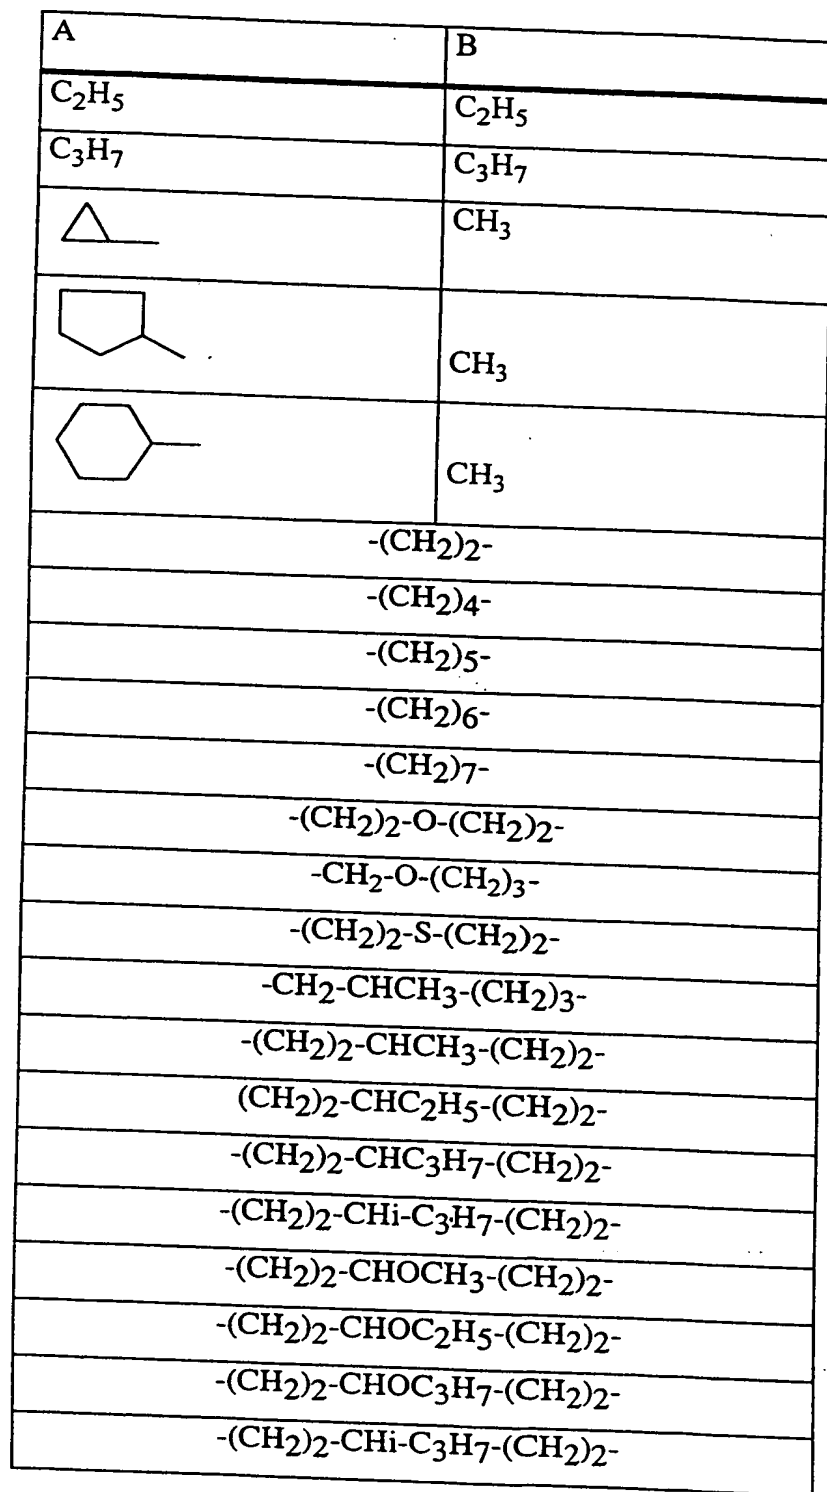 A B
C2H5 C2H5
C3H7 C3H7
CH3
CH3
CH3
-(CH2)2-
-(CH2)4-
-(CH2)5-
-(CH2)6-
-(CH2)7-
-(CH2)2-O-(CH2)2-
-CH2-O-(CH2)3-
-(CH2)2-S-(CH2)2-
-CH2-CHCH3-(CH2)3-
-(CH2)2-CHCH3-(CH2)2-
(CH2)2-CHC2H5-(CH2)2-
-(CH2)2-CHC3H7-(CH2)2-
-(CH2)2-CHi-C3H7-(CH2)2-
-(CH2)2-CHOCH3-(CH2)2-
-(CH2)2-CHOC2H5-(CH2)2-
-(CH2)2-CHOC3H7-(CH2)2-
-(CH2)2-CHi-C3H7-(CH2)2-